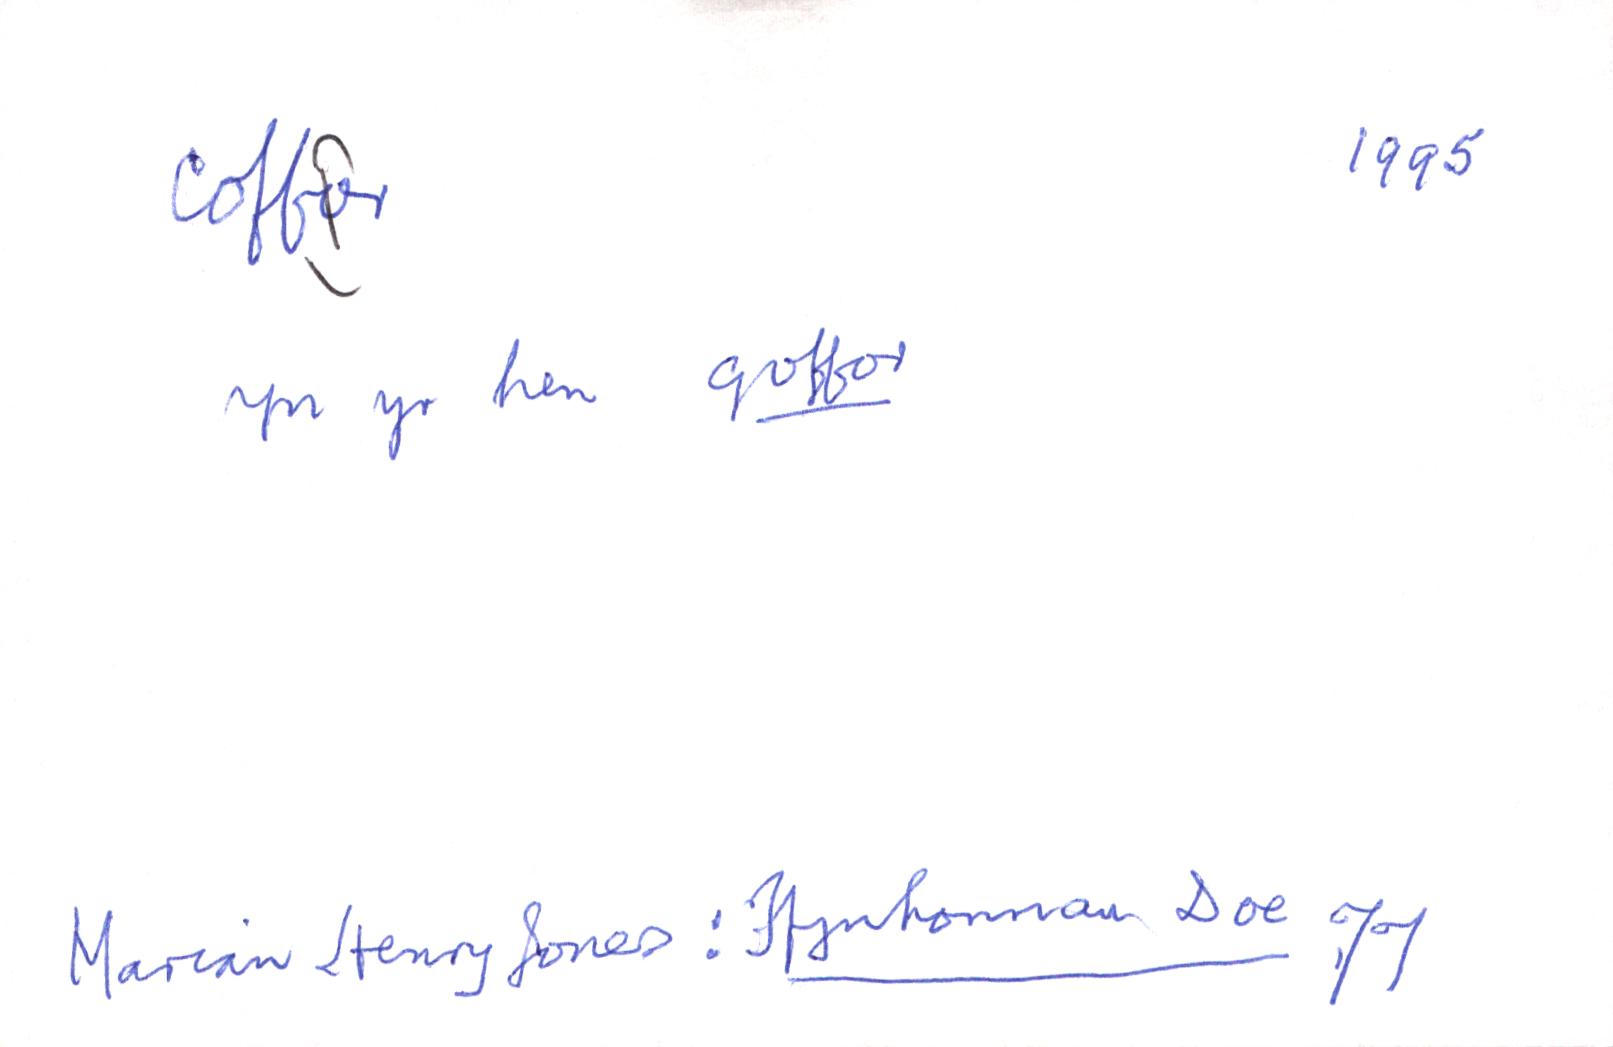 coffor 1995
yn yr hen goffor
Marian Henry Jones : Ffynhonnau Doe